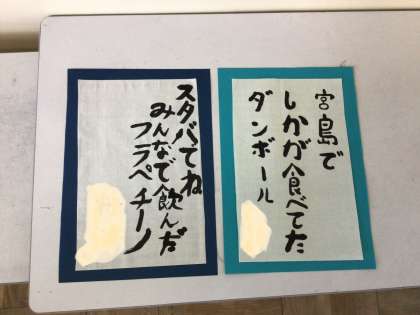 宮島で
しかが食べてた
ダンボール
スタバてね
みんなで飲んだ
フラペチーノ